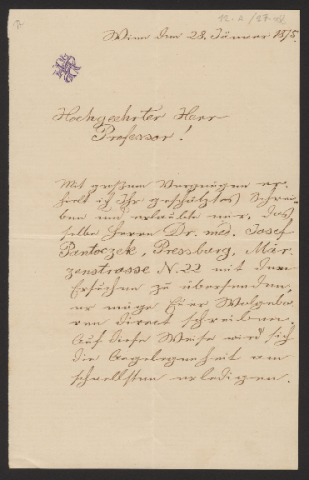 Wien den 28. Jänner 1875.
Hochgeehrter Herr
Professor!
Mit grossem Vergnügen er-
hielt ich Ihr geschätztes Schrei-
ben und erlaubte mir, das-
selbe Herrn Dr. med. Josef
Pantoczek, Pressburg, Mär-
zenstrasse N. 22 mit dem
Ersuchen zu übersenden,
er möge Euer Wolgebo
ren direct schreiben.
Auf diese Weise wird sich
die Angelegenheit am
schnellsten erledigen.